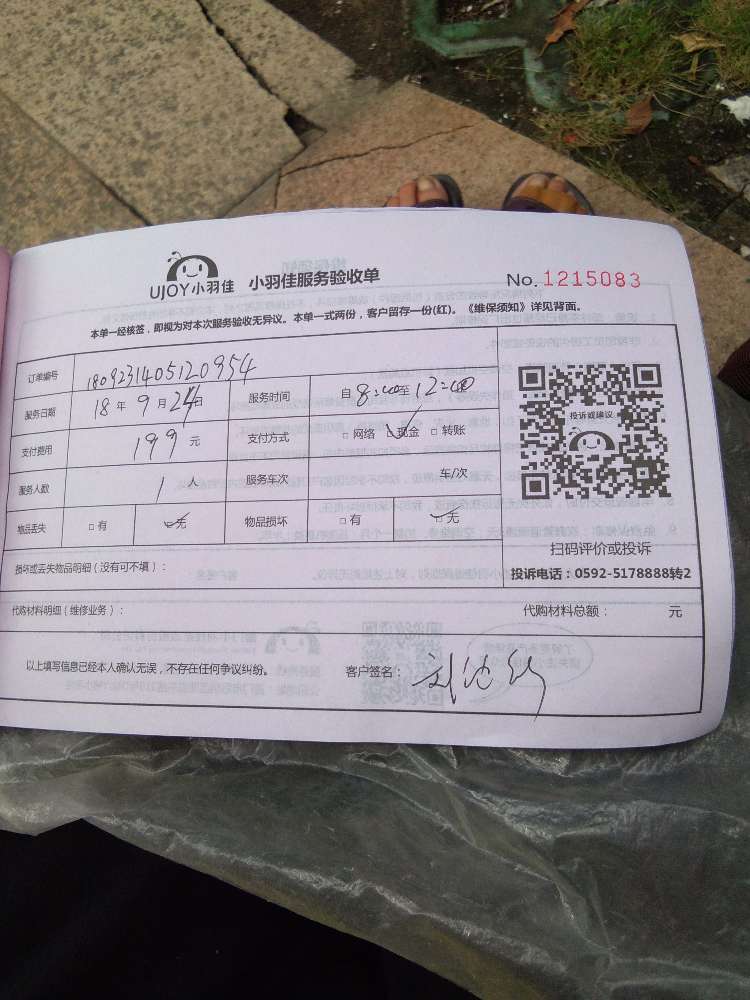 UJOY小羽佳 小羽佳服务验收单 No. 1215083
本单一经核签，即视为对本次服务验收无异议。本单一式两份，客户留存一份(红)。《维保须知》详见背面。
订单编号 1809231405120954
服务日期 18 年 9 月 24 日 服务时间 自 8:00 至 12:00
投诉或建议
支付费用 199 元 支付方式 □ 网络 □ 现金 □ 转账
服务人数 1 人 服务车次 车/次
物品丢失 □ 有 □ 无 物品损坏 □ 有 □ 无
扫码评价或投诉
损坏或丢失物品明细（没有可不填）：
投诉电话：0592-5178888转2
代购材料明细（维修业务）： 代购材料总额： 元
以上填写信息已经本人确认无误，不存在任何争议纠纷。 客户签名：